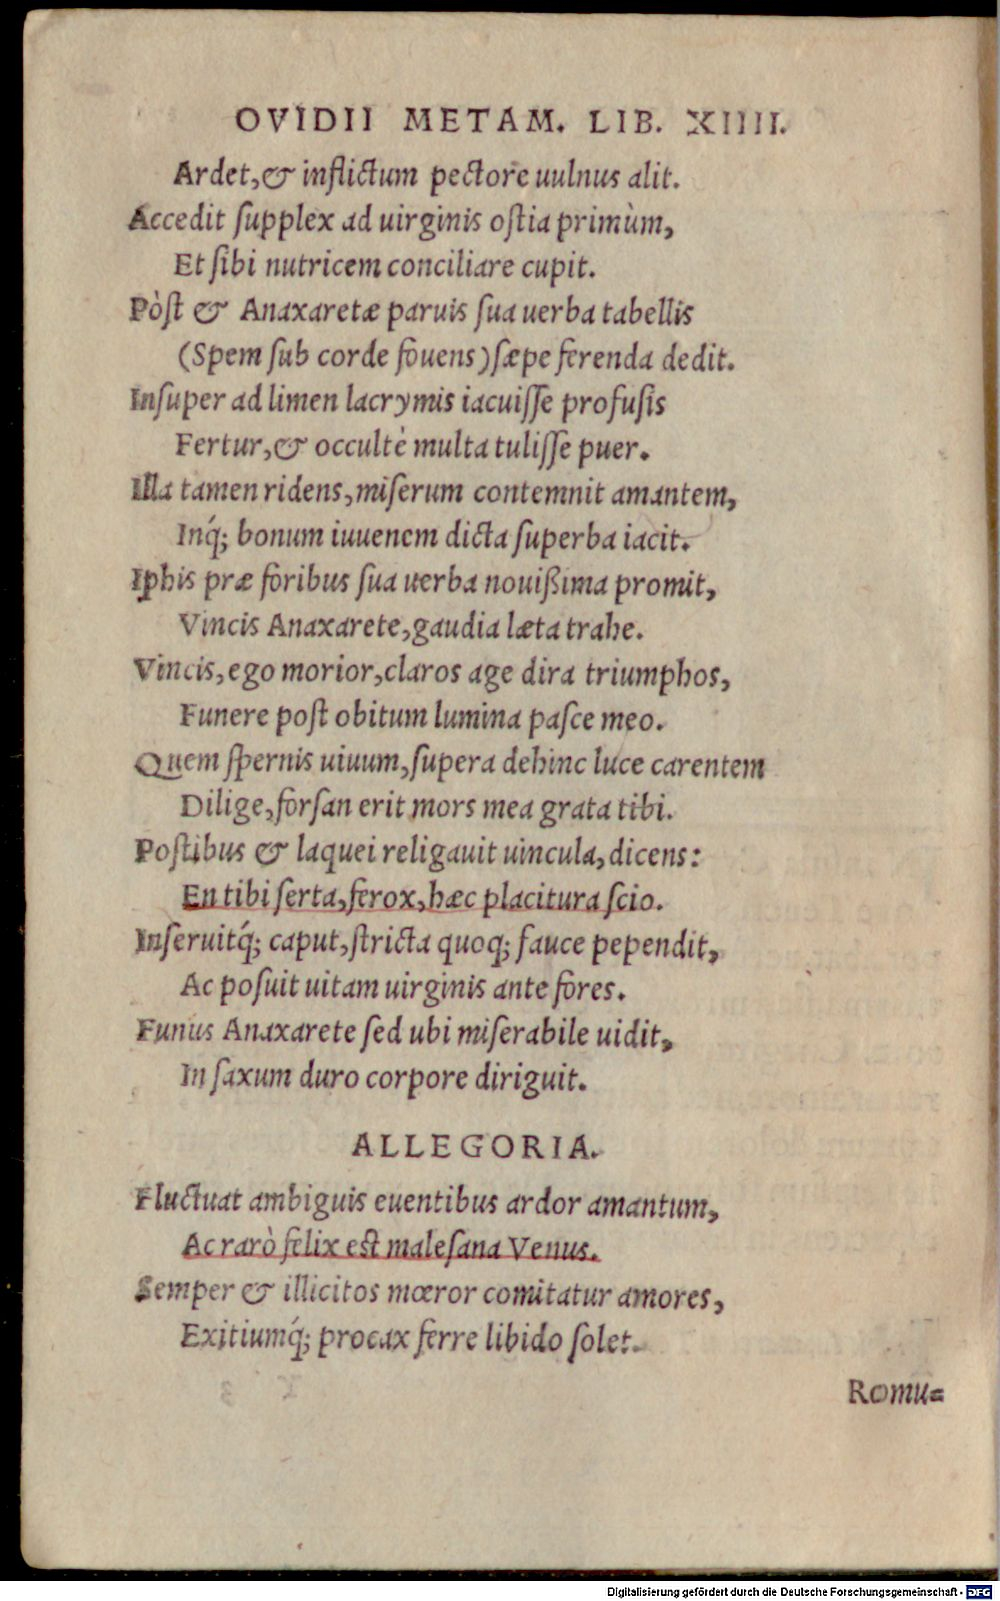 OVIDII METAM. LIB. XIIII.
Ardet,& inflictum pectore uulnus alit.
Accedit ſupplex ad uirginis oſtia primùm,
Et ſibi nutricem conciliare cupit.
Pòſt & Anaxaretæ paruis ſua uerba tabellis
(Spem ſub corde fouens)ſæpe ferenda dedit.
Inſuper ad limen lacrymis iacuiſſe profuſis
Fertur,& occultè multa tuliſſe puer.
Illa tamen ridens,miſerum contemnit amantem,
Inq́; bonum iuuenem dicta ſuperba iacit.
Iphis præ foribus ſua uerba nouißima promit,
Vincis Anaxarete,gaudia læta trahe.
Vincis,ego morior,claros age dira triumphos,
Funere poſt obitum lumina paſce meo.
Quem ſpernis uiuum,ſupera dehinc luce carentem
Dilige,forſan erit mors mea grata tibi.
Poſtibus & laquei religauit uincula,dicens:
En tibi ſerta,ferox,hæc placitura ſcio.
Inſeruitq́; caput,ſtricta quoq; fauce pependit,
Ac poſuit uitam uirginis ante fores.
Funus Anaxarete ſed ubi miſerabile uidit,
In ſaxum duro corpore diriguit.
ALLEGORIA.
Fluctuat ambiguis euentibus ardor amantum,
Ac rarò felix est maleſana Venus.
Semper & illicitos mœror comitatur amores,
Exitiumq́; procax ferre libido ſolet.
Romu=
Digitalisierung gefördert durch die Deutsche Forschungsgemeinschaft - DFG